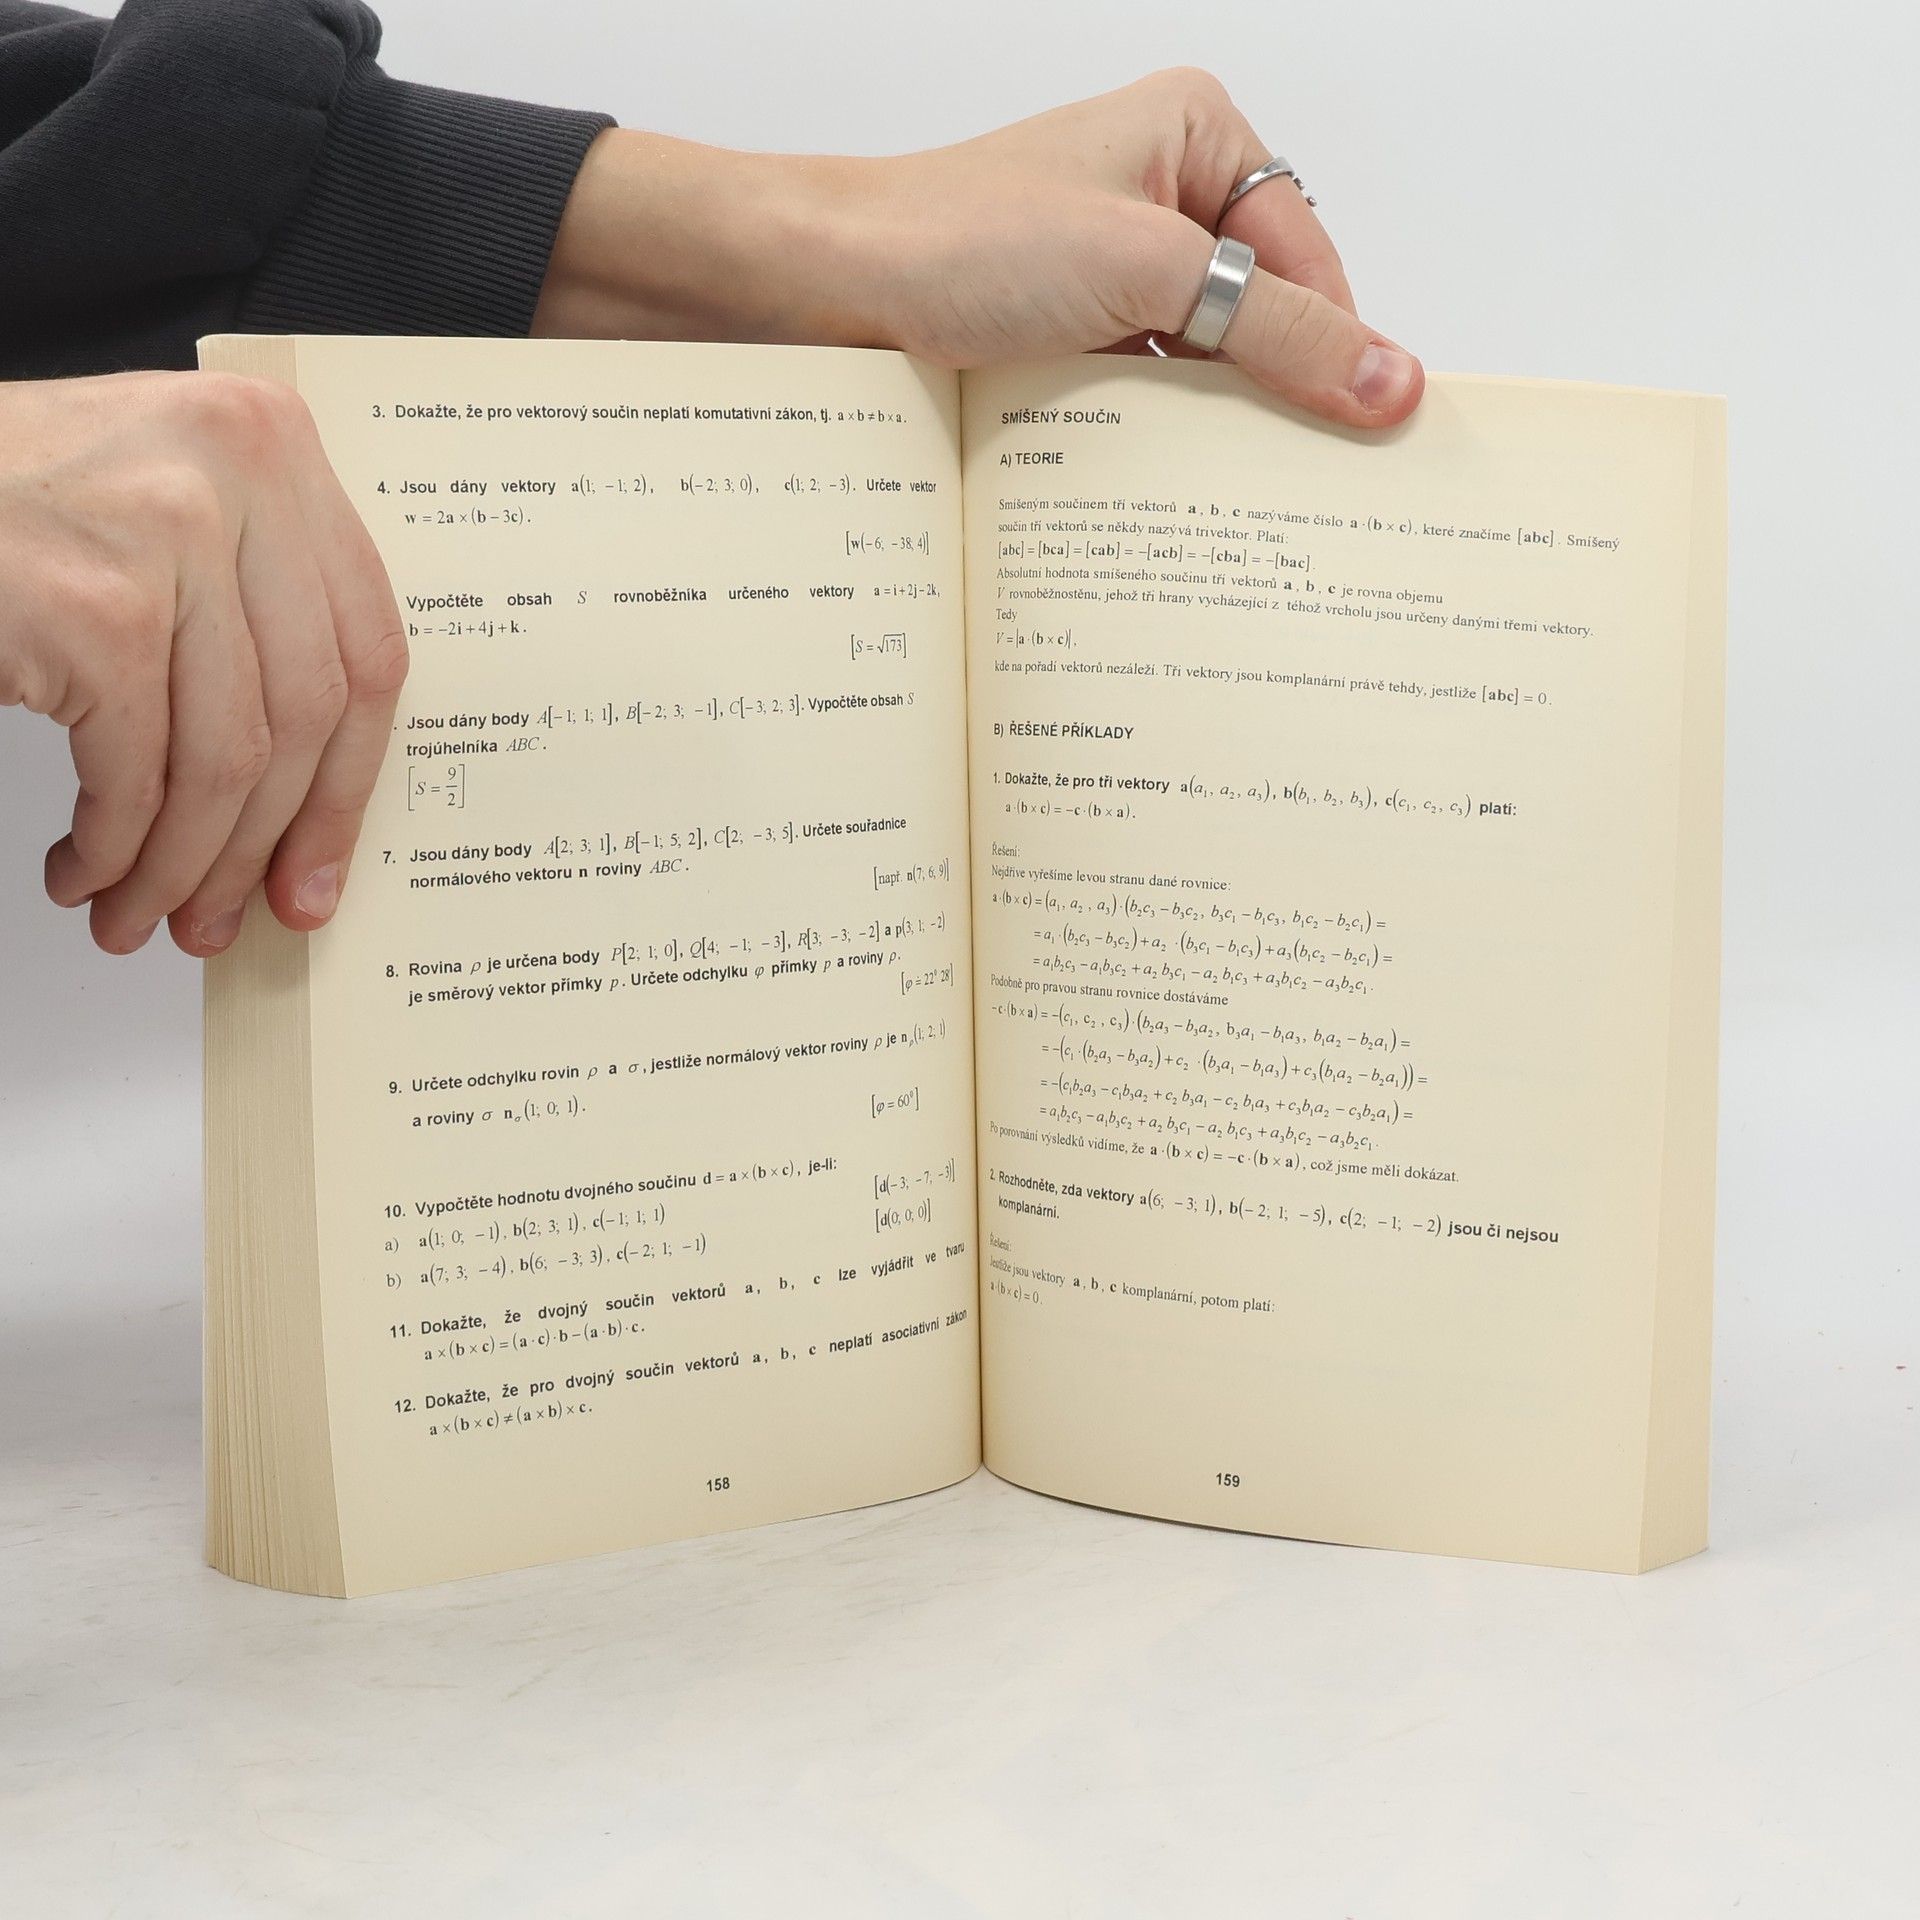 3. Dokažte, že pro vektorový součin neplatí komutativní zákon, tj. a × b ≠ b × a.
4. Jsou dány vektory a(1; −1; 2), b(−2; 3; 0), c(1; 2; −3). Určete vektor
w = 2a × (b − 3c).
[w(−6; −38; 4)]
Vypočtěte obsah S rovnoběžníka určeného vektory a = i + 2j − 2k,
b = −2i + 4j + k.
[S = √173]
. Jsou dány body A[−1; 1; 1], B[−2; 3; −1], C[−3; 2; 3]. Vypočtěte obsah S
trojúhelníka ABC.
[S = 9/2]
7. Jsou dány body A[2; 3; 1], B[−1; 5; 2], C[2; −3; 5]. Určete souřadnice
normálového vektoru n roviny ABC.
[např. n(7; 6; 9)]
8. Rovina ρ je určena body P[2; 1; 0], Q[4; −1; −3], R[3; −3; −2] a p(3; 1; −2)
je směrový vektor přímky p. Určete odchylku φ přímky p a roviny ρ.
[φ = 22° 28']
9. Určete odchylku rovin ρ a σ, jestliže normálový vektor roviny ρ je nρ(1; 2; 1)
a roviny σ nσ(1; 0; 1).
[φ = 60°]
10. Vypočtěte hodnotu dvojného součinu d = a × (b × c), je-li:
a) a(1; 0; −1), b(2; 3; 1), c(−1; 1; 1) [d(−3; −7; −3)]
b) a(7; 3; −4), b(6; −3; 3), c(−2; 1; −1) [d(0; 0; 0)]
11. Dokažte, že dvojný součin vektorů a, b, c lze vyjádřit ve tvaru
a × (b × c) = (a · c) · b − (a · b) · c.
12. Dokažte, že pro dvojný součin vektorů a, b, c neplatí asociativní zákon
a × (b × c) ≠ (a × b) × c.
158
SMÍŠENÝ SOUČIN
A) TEORIE
Smíšeným součinem tří vektorů a, b, c nazýváme číslo a · (b × c), které značíme [abc]. Smíšený
součin tří vektorů se někdy nazývá trivektor. Platí:
[abc] = [bca] = [cab] = −[acb] = −[cba] = −[bac].
Absolutní hodnota smíšeného součinu tří vektorů a, b, c je rovna objemu
V rovnoběžnostěnu, jehož tři hrany vycházející z téhož vrcholu jsou určeny danými třemi vektory.
Tedy
V = |a · (b × c)|,
kde na pořadí vektorů nezáleží. Tři vektory jsou komplanární právě tehdy, jestliže [abc] = 0.
B) ŘEŠENÉ PŘÍKLADY
1. Dokažte, že pro tři vektory a(a₁, a₂, a₃), b(b₁, b₂, b₃), c(c₁, c₂, c₃) platí:
a · (b × c) = −c · (b × a).
Řešení:
Nejdříve vyřešíme levou stranu dané rovnice:
a · (b × c) = (a₁, a₂, a₃) · (b₂c₃ − b₃c₂, b₃c₁ − b₁c₃, b₁c₂ − b₂c₁) =
= a₁ · (b₂c₃ − b₃c₂) + a₂ · (b₃c₁ − b₁c₃) + a₃(b₁c₂ − b₂c₁) =
= a₁b₂c₃ − a₁b₃c₂ + a₂ b₃c₁ − a₂ b₁c₃ + a₃b₁c₂ − a₃b₂c₁.
Podobně pro pravou stranu rovnice dostáváme
−c · (b × a) = −(c₁, c₂, c₃) · (b₂a₃ − b₃a₂, b₃a₁ − b₁a₃, b₁a₂ − b₂a₁) =
= −(c₁ · (b₂a₃ − b₃a₂) + c₂ · (b₃a₁ − b₁a₃) + c₃(b₁a₂ − b₂a₁)) =
= −(c₁b₂a₃ − c₁b₃a₂ + c₂ b₃a₁ − c₂ b₁a₃ + c₃b₁a₂ − c₃b₂a₁) =
= a₁b₂c₃ − a₁b₃c₂ + a₂ b₃c₁ − a₂ b₁c₃ + a₃b₁c₂ − a₃b₂c₁.
Po porovnání výsledků vidíme, že a · (b × c) = −c · (b × a), což jsme měli dokázat.
2. Rozhodněte, zda vektory a(6; −3; 1), b(−2; 1; −5), c(2; −1; −2) jsou či nejsou
komplanární.
Řešení:
Jestliže jsou vektory a, b, c komplanární, potom platí:
a · (b × c) = 0.
159